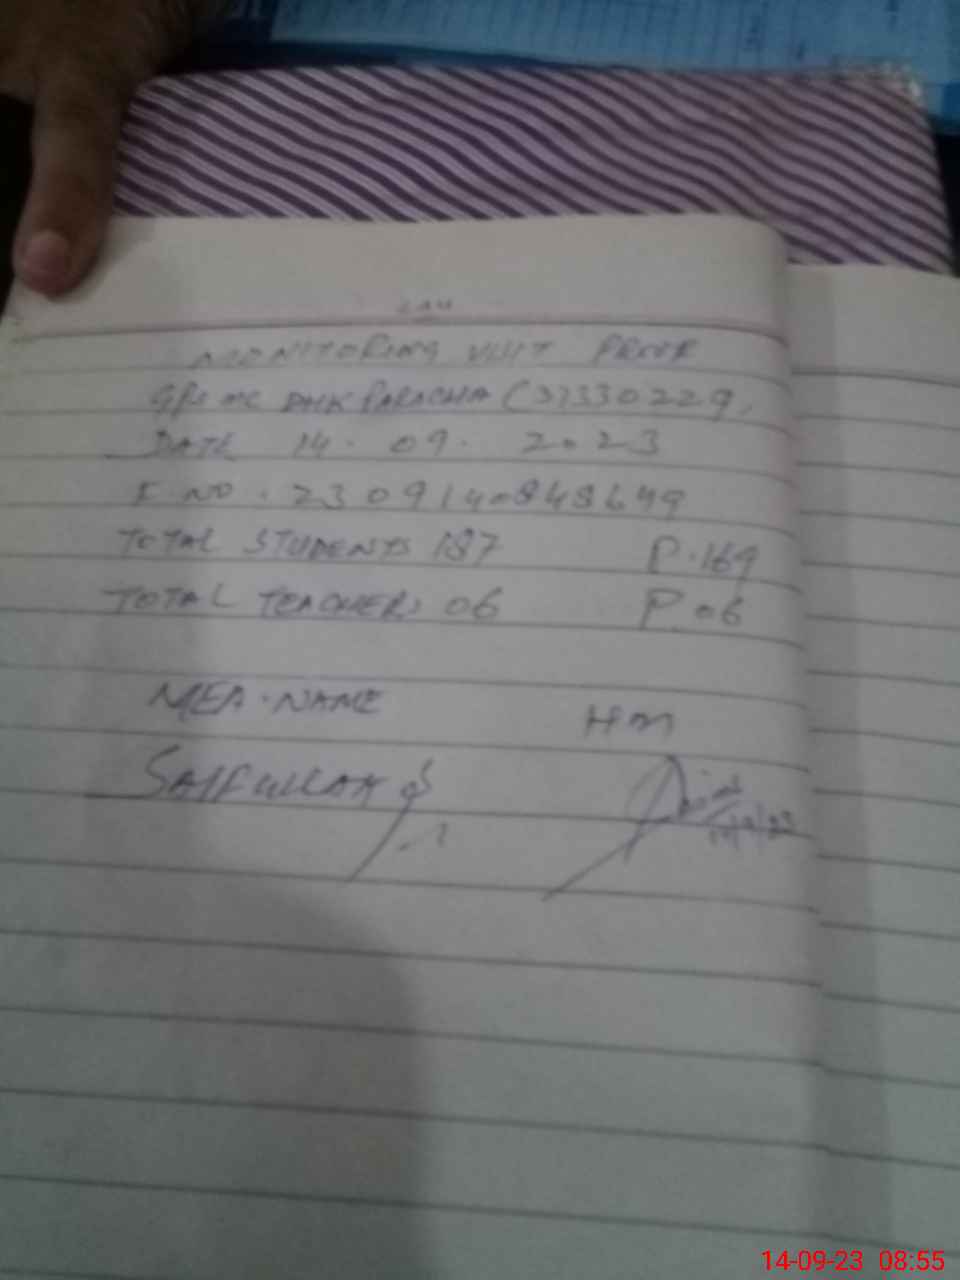 MONITORING VISIT PROOF
GPS MC DHK PARACHA (37330229,
DATE 14. 09. 2023
F NO. 2309140848649
TOTAL STUDENTS 187 P. 169
TOTAL TEACHERS 06 P. 06
MEA. NAME HM
SAIFULLAH
14-09-23 08:55